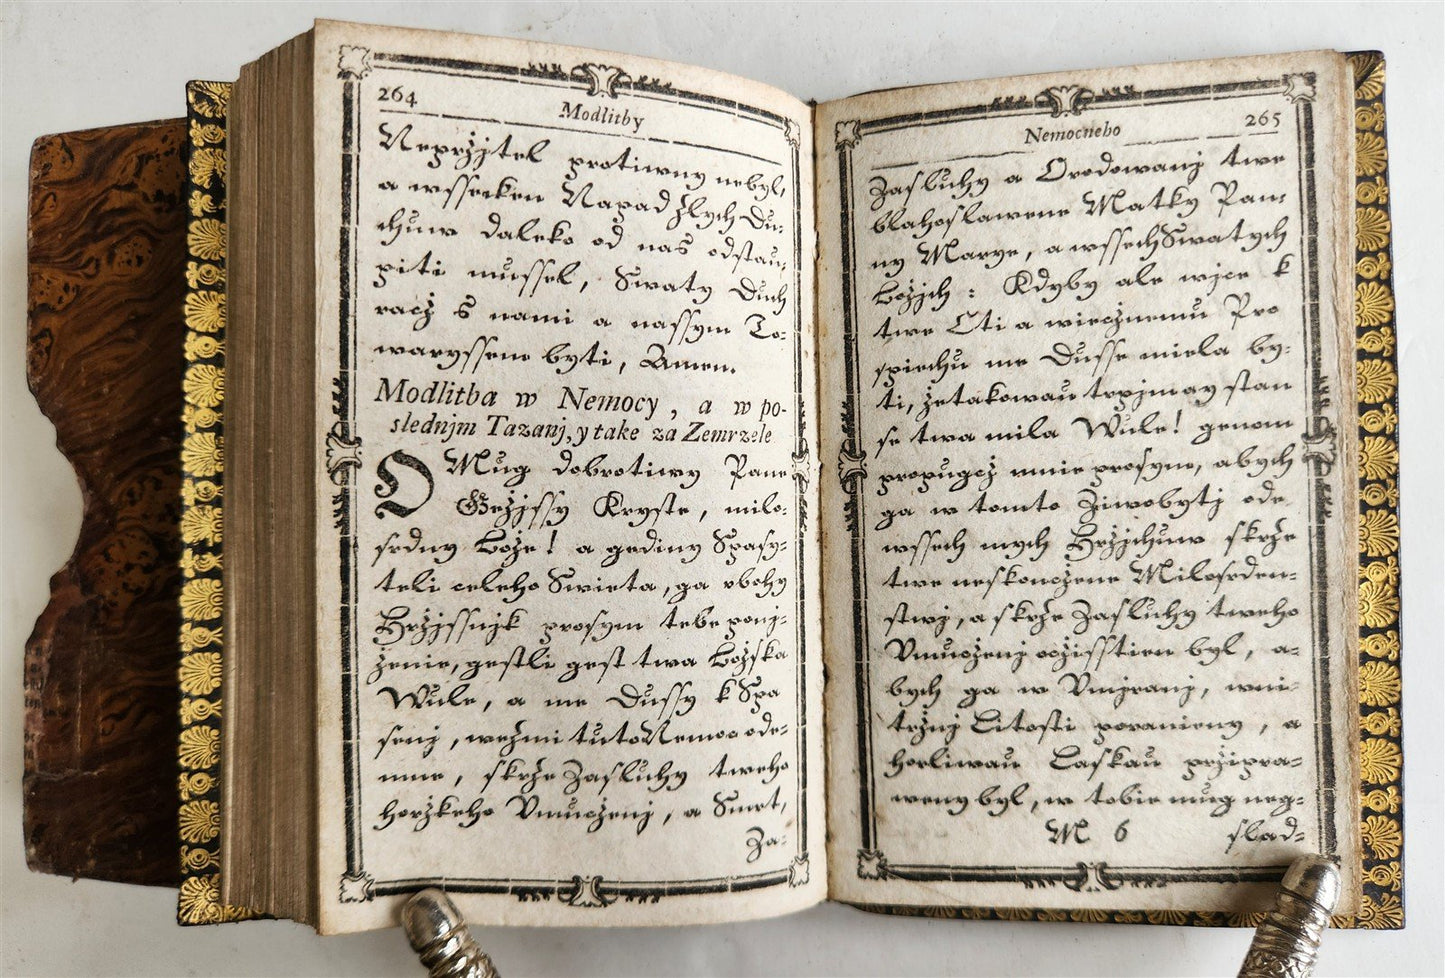 264
Modlitby
Nepržjtel protiwny nebyl,
a wssecken Napad zlych Du-
chuw daleko od nas odstau-
piti mussel, Swaty Duch
racž s nami a nassym To-
waryssem byti, Amen.
Modlitba w Nemocy, a w po-
slednjm Tazanj, y take za Zemrzele
O Mug dobrotiwy Pane
Gežjssy Kryste, milo-
srdny Bože! a gediny Spasy-
teli celeho Swieta, ga vbohy
Hržjssnjk prosym tebe ponj-
ženie, gestli gest twa Božska
Wule, a me Dussy k Spa
senj, wežmi tuto Nemoc ode-
mne, skrže Zasluhy tweho
horžkeho Vmucženj, a Smrt,
Za-
Nemocneho
265
Zasluhy a Orodowanj twe
blahoslawene Matky Pan-
ny Marye, a wssech Swatych
Božjch: Kdyby ale wjce k
twe Cti a wiecžnemu Pro
spiechu me Dusse miela by-
ti, že takowau trpjm ay stan
se twa mila Wule! genom
propugcž mnie prosyme, abych
ga w tomto Žiwobytj ode
wssech mych Hržjchuw skrže
twe neskoncžene Milosrden-
stwj, a skrže Zasluhy tweho
Vmucženj ocžisstien byl, a-
bych ga w Vmjranj, wni-
tržnj Litosti poranieny, a
horliwau Laskau pržipra-
weny byl, w tobie mug neg-
M 6
slad-